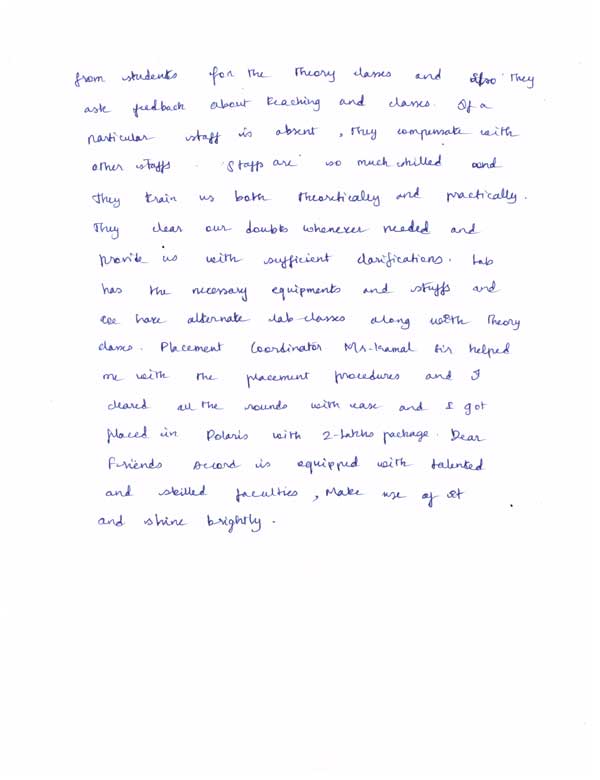 from students for the Theory classes and also They
ask feedback about teaching and classes. If a
particular staff is absent , They compensate with
other staffs . Staffs are so much skilled and
They train us both Theoretically and practically.
They clear our doubts whenever needed and
provide us with sufficient clarifications. Lab
has the necessary equipments and stuffs and
we have alternate lab-classes along with Theory
classes. Placement Coordinator Mr-Kamal Sir helped
me with the placement procedures and I
cleared all the rounds with ease and I got
placed in Polaris with 2-Lakhs package. Dear
Friends Accord is equipped with talented
and skilled faculties , Make use of it
and shine brightly.